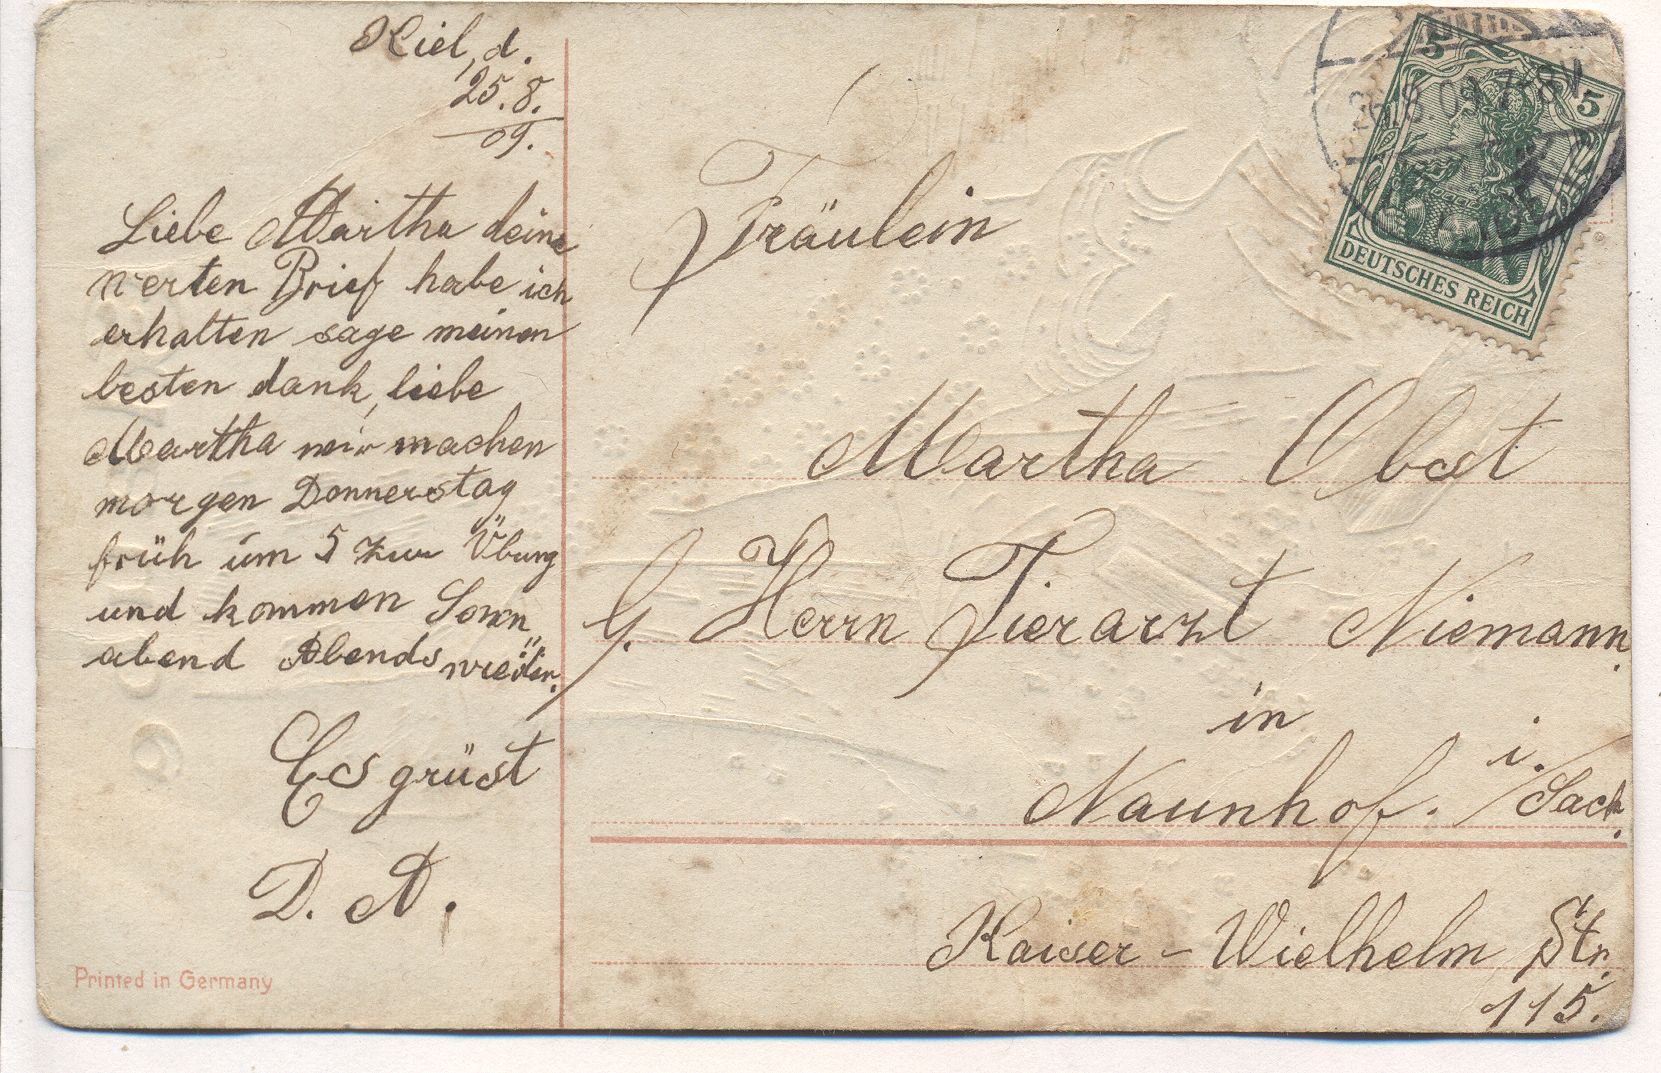 Kiel, d.
25.8.
09.
Liebe Martha deine
werten Brief habe ich
erhalten sage meinen
besten dank, liebe
Martha wir machen
morgen Donnerstag
früh um 5 zur Übung
und kommen Sonn
abend Abends wieder.
Es grüst
D. A.
Printed in Germany
Fräulein
Martha Obst
Herrn Tierarzt Niemann.
in
Naunhof. i./Sach.
Kaiser-Wielhelm Str.
115.
5
5
DEUTSCHES REICH
26.8.09.7-8V